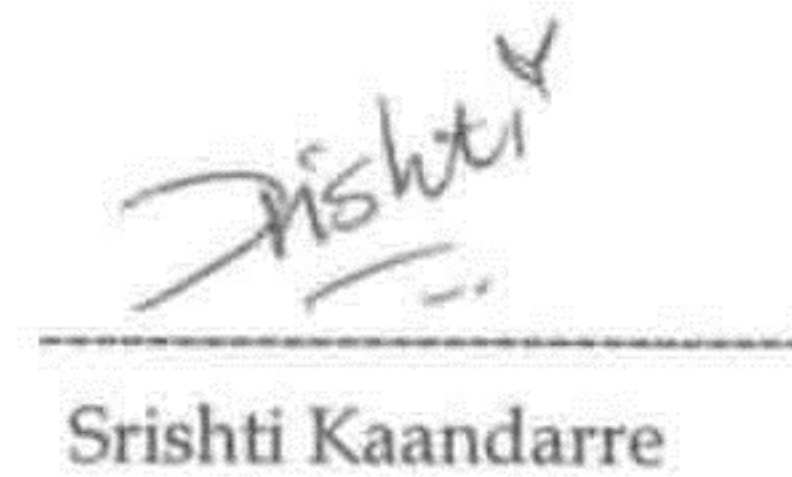 Srishti
Srishti Kaandarre